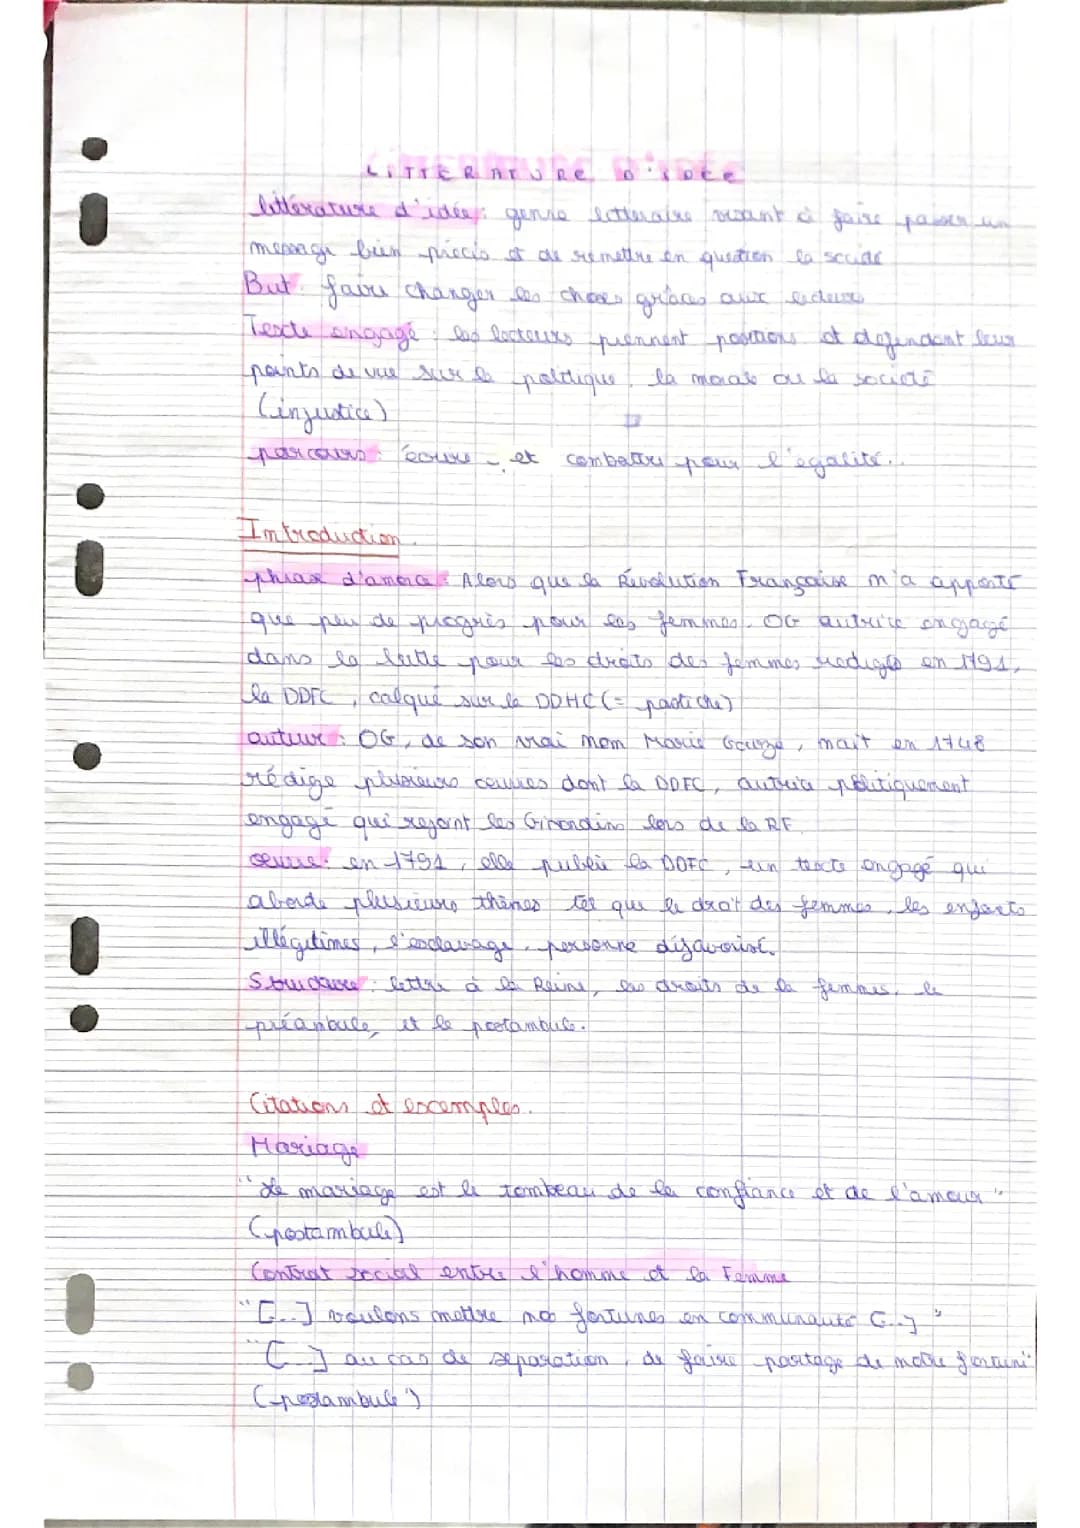 LITTERATURE D'IDÉE
littérature d'idée : genre litteraire visant à faire passer un
message bien précis et de remettre en question la sociéte
But : faire changer les choses grâces aux lecteurs
Texte engagé : les lecteurs prennent positions et defendent leur
points de vue sur la politique, la morale ou la société
(injustice)
parcours : écrire et combattre pour l'égalité.
Introduction.
phrase d'amorce : Alors que la Révolution Française n'a apporté
que peu de progrès pour les femmes. OG autrice engagé
dans la lutte pour les droits des femmes rediges en 1791,
la DDFC, calqué sur la DDHC (= pastiche)
auteur : OG, de son vrai nom Marie Gouze, nait en 1748
rédige plusieurs oeuvres dont la DDFC, autrice politiquement
engagé qui rejoint les Girondins lors de la RF.
oeuvre : en 1791, elle publie la DDFC, un texte engagé qui
aborde plusieurs thèmes tel que le droit des femmes, les enfants
illégitimes, l'esclavage, personne défavorisé.
Structure : lettre à la Reine, les droits de la femmes, le
préambule, et le postambule.
Citations et exemples.
Mariage
"Le mariage est le tombeau de la confiance et de l'amour"
(postambule)
Contrat social entre l'homme et la Femme
"[...] voulons mettre nos fortunes en communauté [...]"
"[...] au cas de séparation, de faire partage de notre fortune"
(postambule)